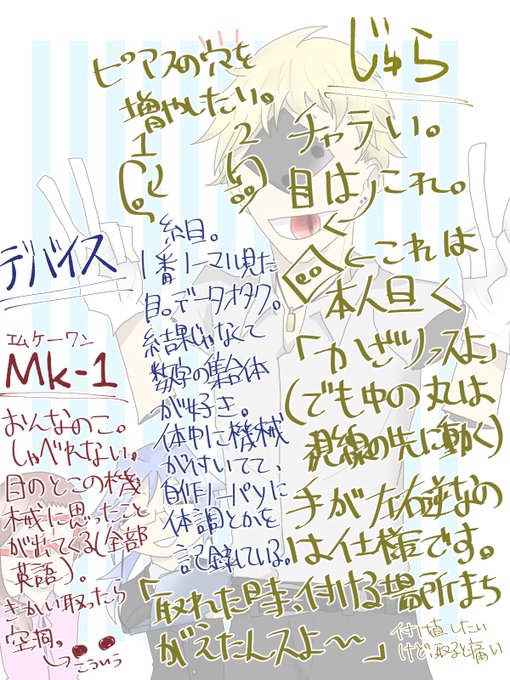 じゅら
ピアスの穴を
増やしたい。
1 2
チャラい。
目はこれ。
<<これは
本人曰く
「かざりっスよ」
(でも中の丸は
視線の先に動く)
手が左右逆なの
は仕様です。
「取れた時、付ける場所まち
がえたんスよ〜」
付け直したい
けど、取ると痛い
デバイス
糸目。
1番ノーマル見た
目。データオタク。
結果じゃなくて
数字の集合体
が好き。
体中に機械
が付いてて、
自作ノーパソに
体調とかを
記録している。
エムケーワン
Mk-1
おんなのこ。
しゃべれない。
目のとこの機
械に思ったこと
が出てくる(全部
英語)。
きかい取ったら
空洞。
こういう